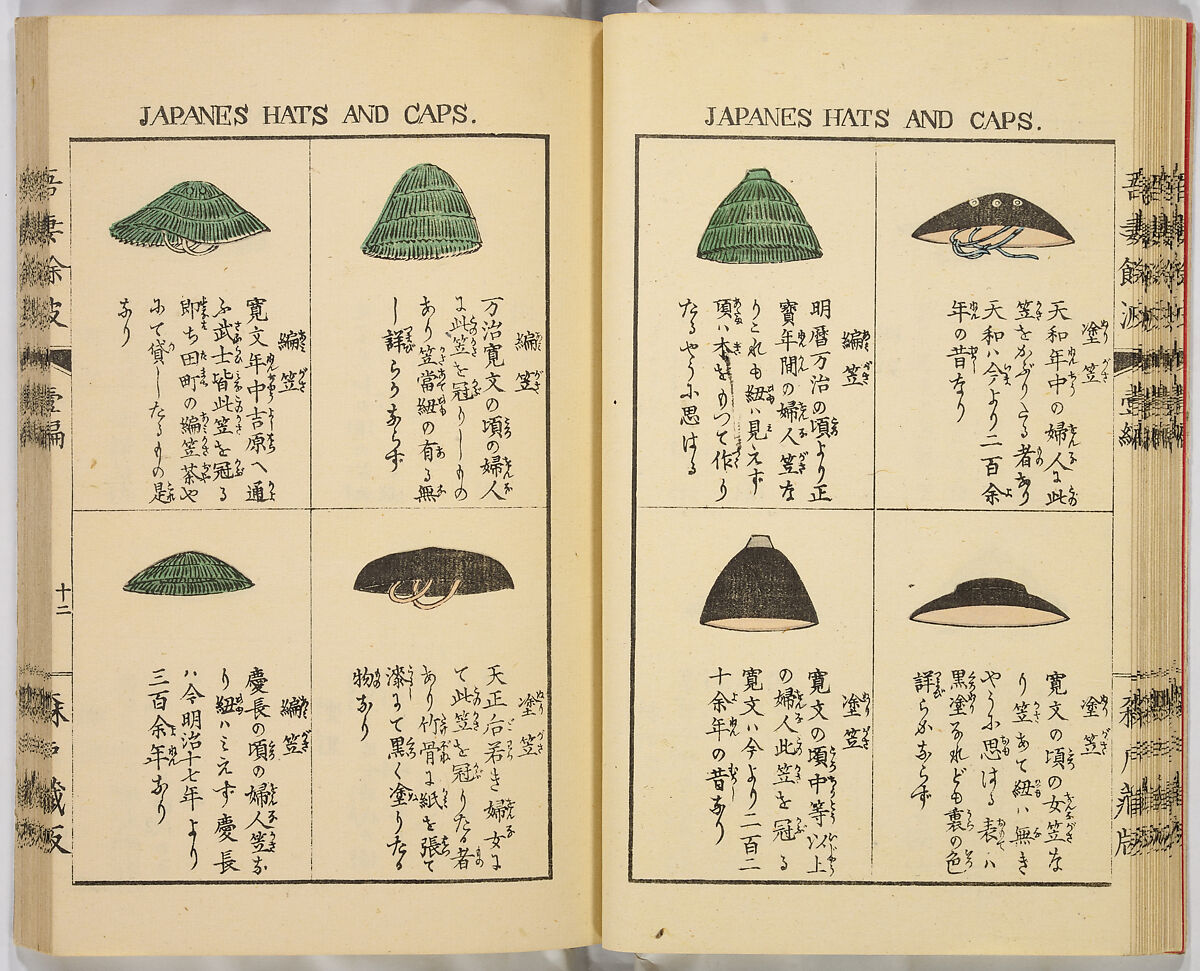 JAPANES HATS AND CAPS.
塗笠
天和年中の婦人に此
笠をかぶりたる者あり
天和ハ今より二百余
年の昔なり
編笠
明暦万治の頃より正
寳年間の婦人笠な
りこれも紐ハ見えず
頂ハ木をもつて作り
たるやうに思はる
塗笠
寛文の頃の女笠な
り笠あて紐ハ無き
やうに思はる表ハ
黒塗なれども裏の色
詳らかならず
塗笠
寛文の頃中等以上
の婦人此笠を冠る
寛文ハ今より二百二
十余年の昔なり
JAPANES HATS AND CAPS.
編笠
万治寛文の頃の婦人
に此笠を冠りしもの
あり笠當紐の有る無
し詳らかならず
編笠
寛文年中吉原へ通
ふ武士皆此笠を冠る
即ち田町の編笠茶や
にて貸したるもの是
なり
塗笠
天正右若き婦女に
て此笠を冠りたる者
あり竹骨に紙を張て
漆にて黒く塗りたる
物なり
編笠
慶長の頃の婦人笠な
り紐ハミえず慶長
ハ今明治十七年より
三百余年なり
十二